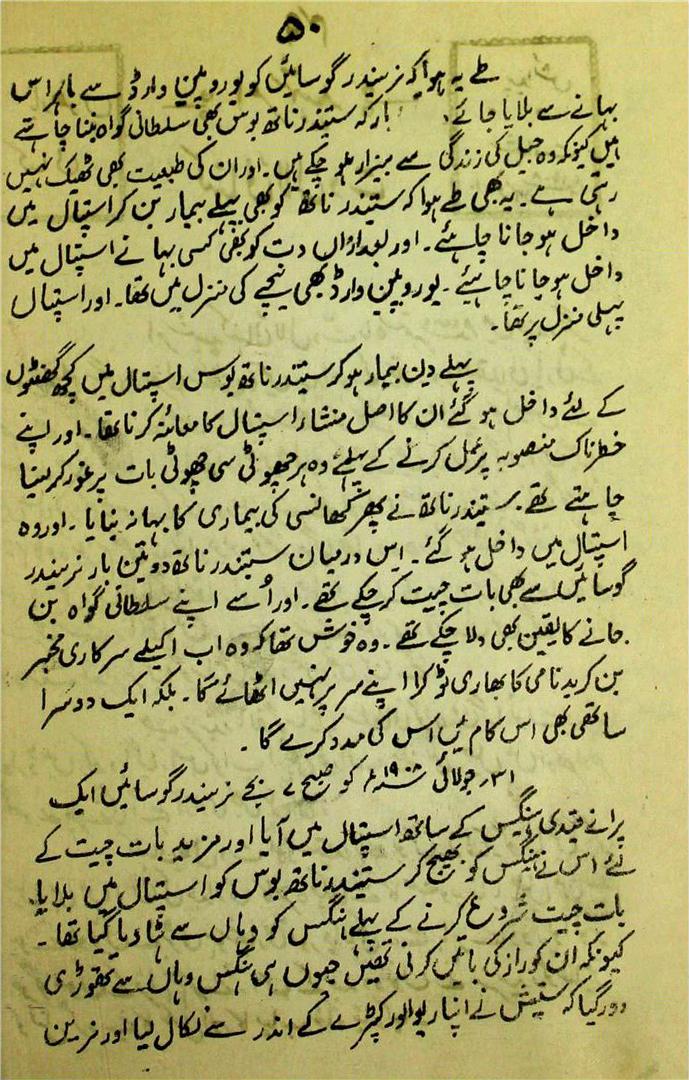 ۵۰
طے یہ ہوا کہ نریندر گوسائیں کو یوروپین وارڈ سے باہر اس
بہانے سے بلایا جائے، بار کہ ستیندر ناتھ بوس بھی سلطانی گواہ بننا چاہتے
ہیں کیونکہ وہ جیل کی زندگی سے بیزار ہو چکے ہیں۔ اور ان کی طبعیت بھی ٹھیک نہیں
رہتی ہے۔ یہ بھی طے ہوا کہ ستیندر ناتھ کو بھی پہلے بیمار بن کر اسپتال میں
داخل ہو جانا چاہئے۔ اور بعد ازاں دت کو بھی کسی بہانے اسپتال میں
داخل ہو جانا چاہیئے۔ یوروپین وارڈ بھی نیچے کی منزل میں تھا۔ اور اسپتال
پہلی منزل پر تھا۔
پہلے دن بیمار ہو کر ستیندر ناتھ بوس اسپتال میں کچھ گھنٹوں
کے لئے داخل ہو گئے ان کا اصل منشاء اسپتال کا معائنہ کرنا تھا۔ اور اپنے
خطرناک منصوبہ پر عمل کرنے کے پہلے وہ ہر چھوٹی سی چھوٹی بات پر غور کر لینا
چاہتے تھے۔ ستیندر ناتھ نے پھر کھانسی کی بیماری کا بہانہ بنایا۔ اور وہ
اسپتال میں داخل ہو گئے۔ اس درمیان ستیندر ناتھ دو تین بار نریندر
گوسائیں سے بھی بات چیت کر چکے تھے۔ اور اُسے اپنے سلطانی گواہ بن
جانے کا یقین بھی دلا چکے تھے۔ وہ خوش تھا کہ وہ اب اکیلے سرکاری مخبر
بن کر بدنامی کا بھاری ٹوکرا اپنے سر پر نہیں اٹھائے گا۔ بلکہ ایک دوسرا
ساتھی بھی اس کام میں اس کی مدد کرے گا۔
۳۱؍ جولائی ۱۹۰۸ء کو صبح ۷ بجے نریندر گوسائیں ایک
پرانے قیدی ہینگس کے ساتھ اسپتال میں آیا اور مزید بات چیت کے
لئے اس نے ہینگس کو بھیج کر ستیندر ناتھ بوس کو اسپتال میں بلایا۔
بات چیت شروع کرنے کے پہلے ہنگس کو وہاں سے ہٹا دیا گیا تھا۔
کیونکہ ان کو راز کی باتیں کرنی تھیں جیوں ہی ہنگس وہاں سے تھوڑی
دور گیا کہ ستیش نے اپنا ریوالور کپڑے کے اندر سے نکال لیا اور نرین